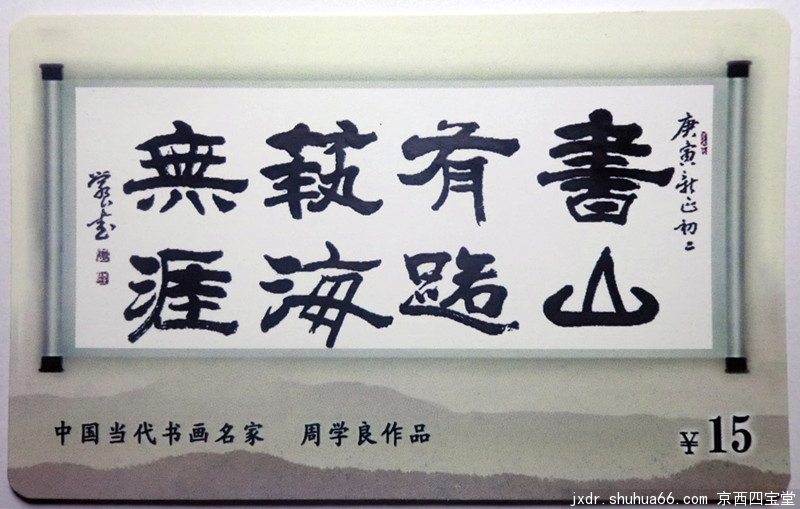 庚寅新正初二
書山
有路
蓺海
無涯
中国当代书画名家 周学良作品
¥15
jxdr.shuhua66.com 京西四宝堂